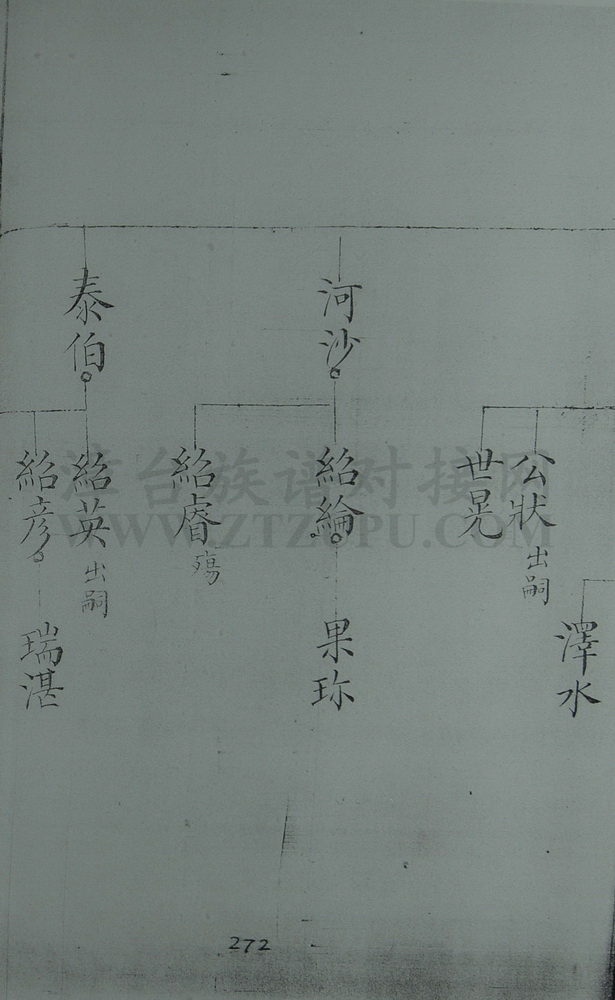 公狀 出嗣
世晃
澤水
河沙
紹綸
紹睿 殤
果珎
泰伯
紹英 出嗣
紹彥
瑞湛
272
漳台族谱对接网
WWW.ZTZUPU.COM